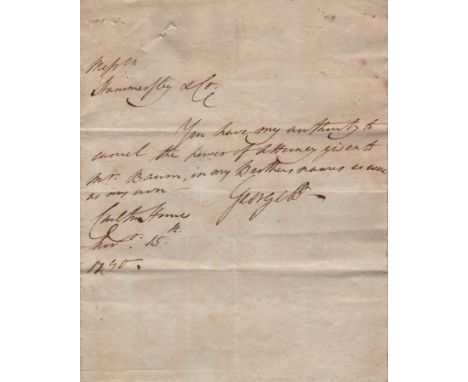 Messrs
Hammersley & Co.
You have my authority to
cancel the power of attorney given to
Mr. Baum, in my Brothers names as well
as my own
George P.
Carlton House
Novr. 15th
1790.